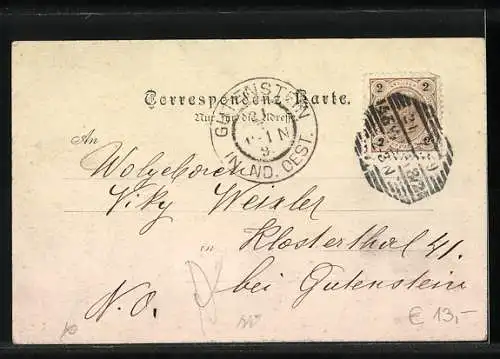 Correspondenz-Karte.
Nur für die Adresse.
GUTENSTEIN
IN ND. OEST.
2 2
2 2
An
Wolgeboren
Viky Weixler
in Klosterthal 41.
bei Gutenstein
N.O.
€ 13,-